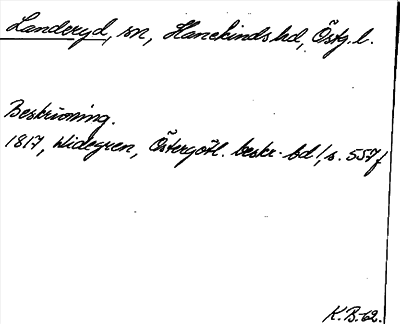 Landeryd, sn, Hanekinds hd, Östg. l.
Beskrivning.
1817, Widegren, Östergötl. beskr. bd 1, s. 557 f
K.B.-62.